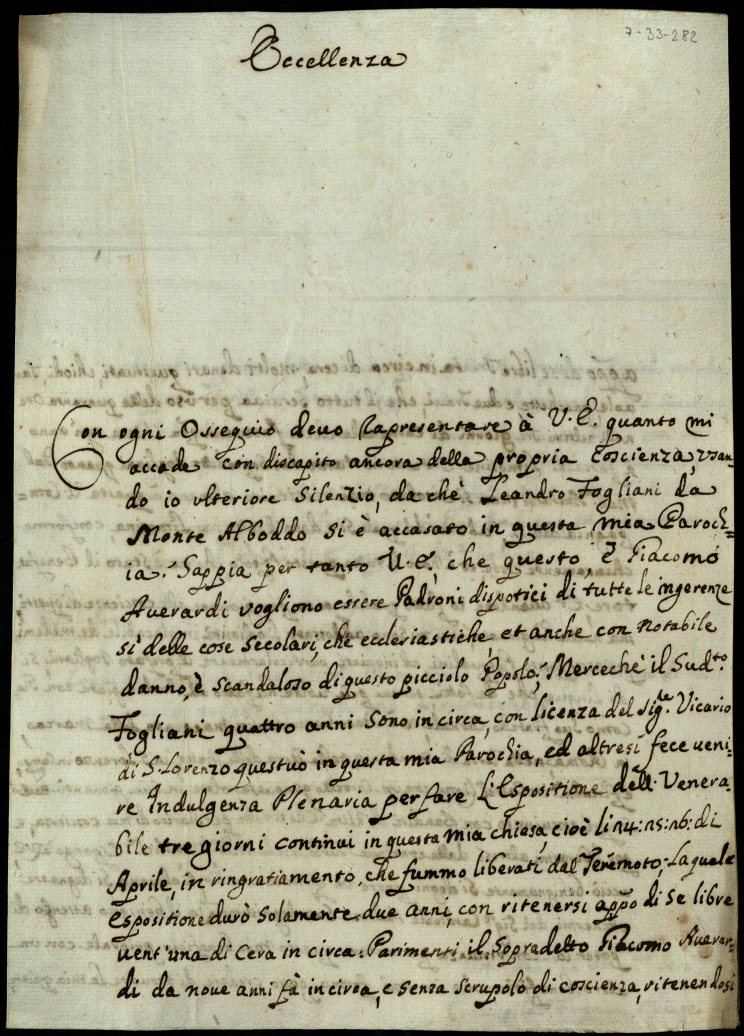 7-33-282
Eccellenza
Con ogni Ossequio deuo rapresentare à V.E. quanto mi
accada con discapito ancora della propria coscienza, usan=
do io ulteriore Silenzio, da che Leandro Fogliani da
Monte Alboddo si è accasato in questa mia Paroch=
ia. Sappia per tanto V.E. che questo, è Giacomo
Auerardi vogliono essere Padroni dispotici di tutte le ingerenze
si delle cose Secolari, che ecclesiastiche, et anche con notabile
danno, è scandaloso di questo picciolo Popolo; Merceche il Sud.to
Fogliani quattro anni sono in circa, con licenza del Sig.re Vicario
di S. Lorenzo questuò in questa mia Parochia, ed altresi fece ueni=
re Indulgenza Plenaria per fare L'Espositione dell Venera=
bile tre giorni continui in questa mia chiesa, cioè li 14: 15: 16: di
Aprile, in ringratiamento, che fummo liberati dal Terremoto; La quale
espositione durò solamente due anni, con ritenersi app.o di se libre
uent'una di Cera in circa. Parimenti il Sopradetto Giacomo Auerar=
di da noue anni fà in circa, e senza scrupolo di coscienza, ritenendosi